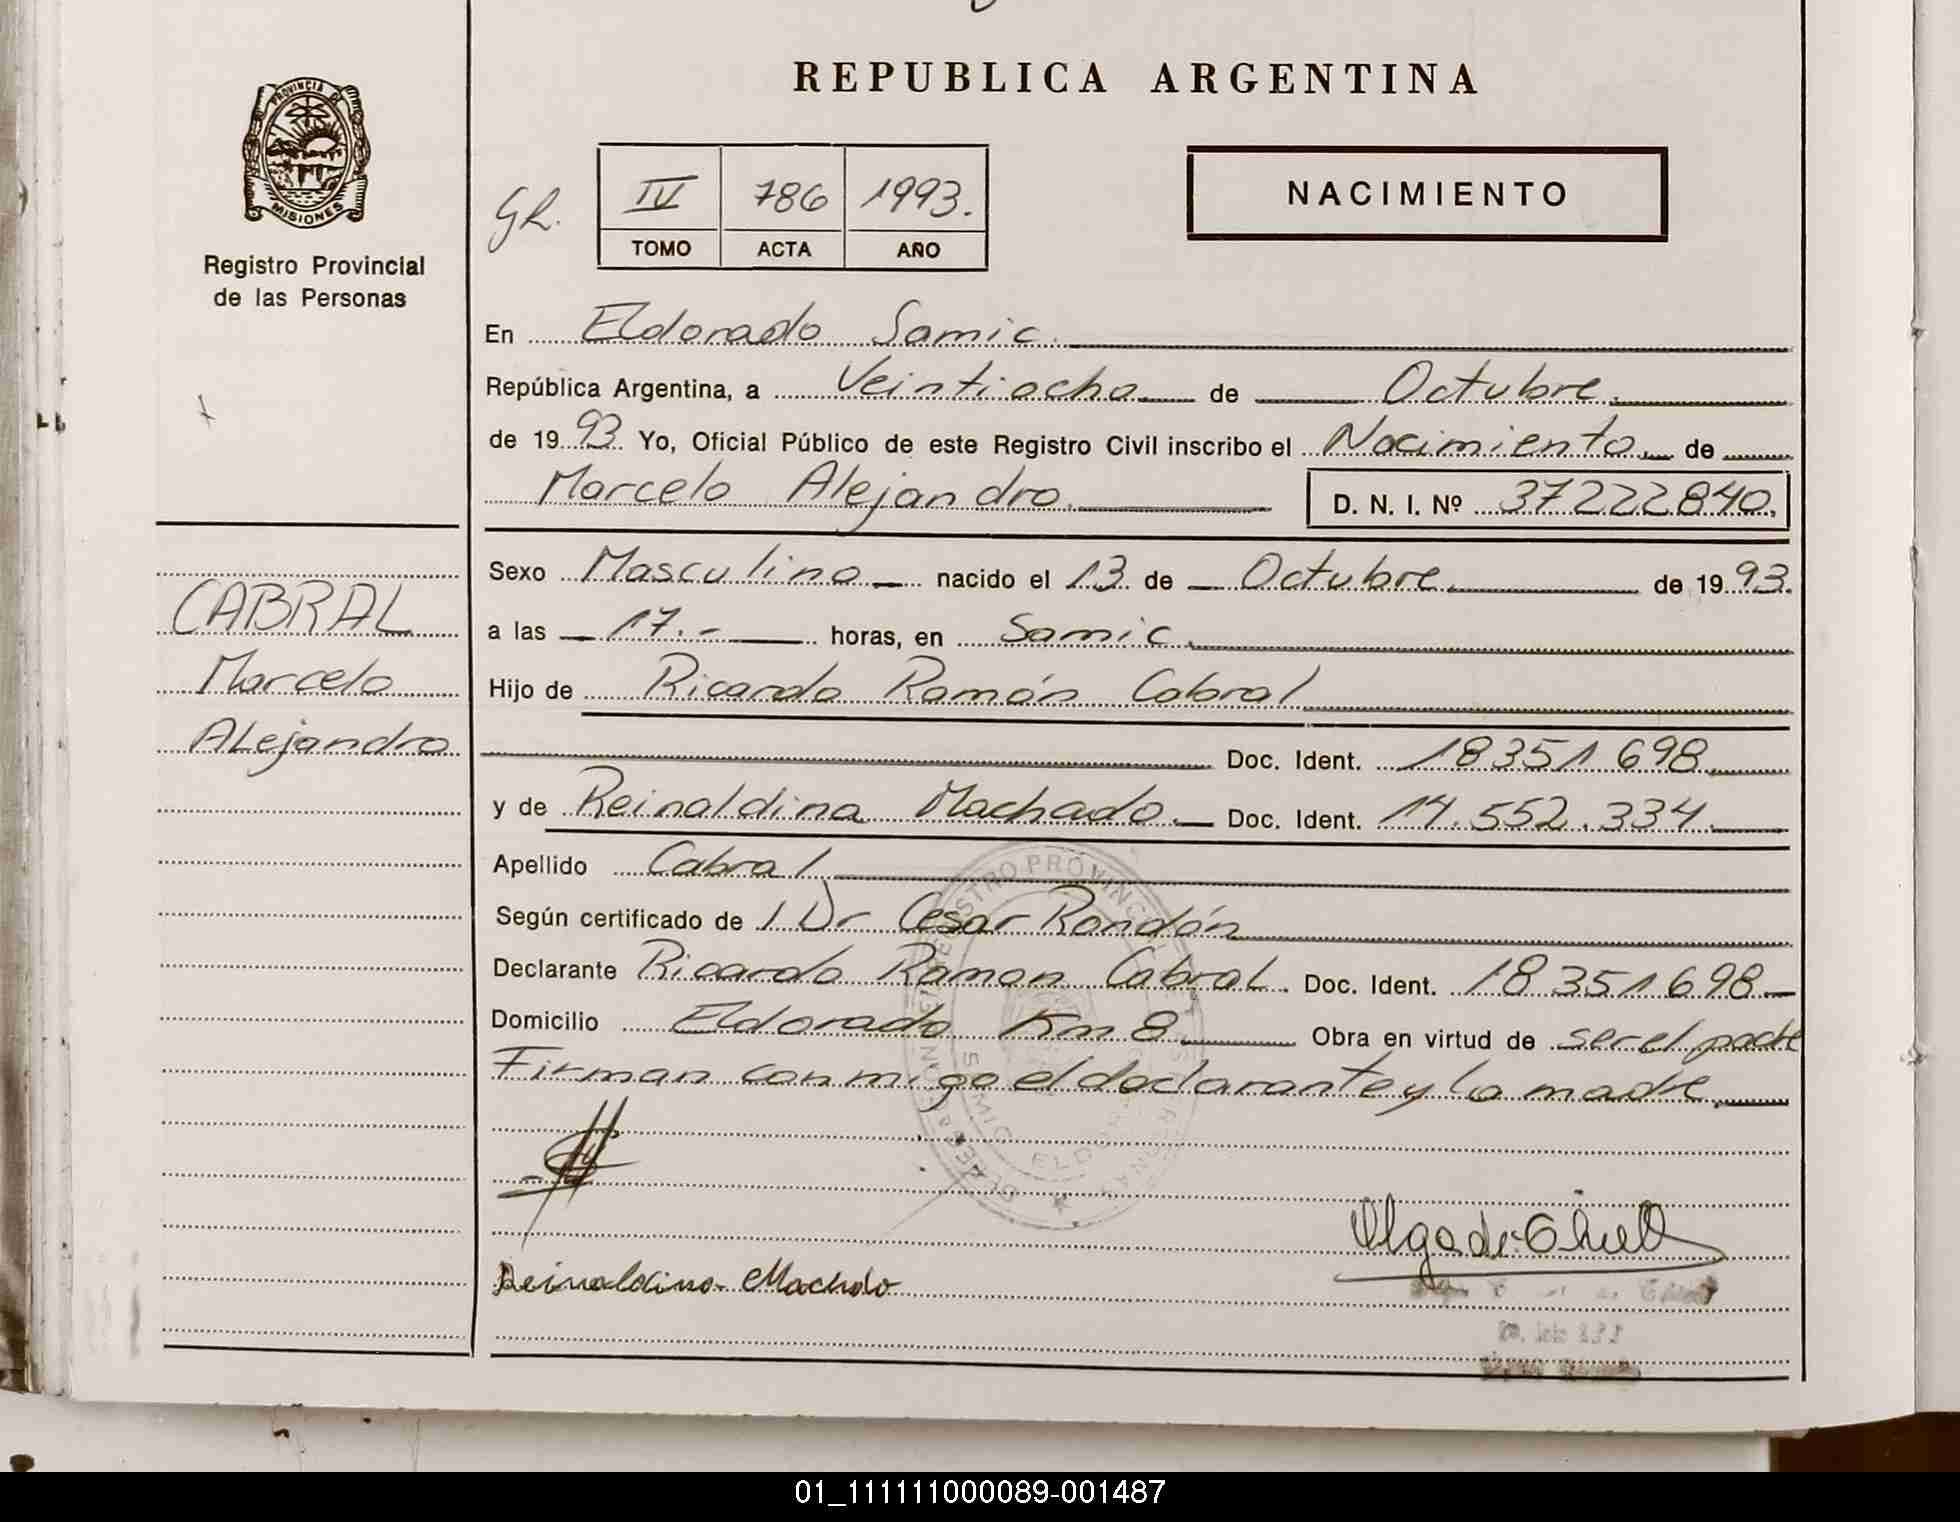 REPUBLICA ARGENTINA
PROVINCIA DE
MISIONES
Registro Provincial
de las Personas
GR.
IV 786 1993.
TOMO ACTA AÑO
NACIMIENTO
En Eldorado Samic.
República Argentina, a Veintiocho de Octubre.
de 1993 Yo, Oficial Público de este Registro Civil inscribo el Nacimiento de
Marcelo Alejandro. D. N. I. Nº 37222840.
CABRAL
Marcelo
Alejandro
Sexo Masculino nacido el 13 de Octubre de 1993.
a las 17.- horas, en Samic.
Hijo de Ricardo Ramón Cabral
Doc. Ident. 18351698
y de Reinaldina Machado. Doc. Ident. 14.552.334.
Apellido Cabral
Según certificado de Dr Cesar Rondón
Declarante Ricardo Ramon Cabral. Doc. Ident. 18351698
Domicilio Eldorado Km 8 Obra en virtud de ser el padre
Firman conmigo el declarante y la madre.
REGISTRO PROVINCIAL
SAMIC ELDORADO
Reinaldina Machado
Olga de
01_111111000089-001487